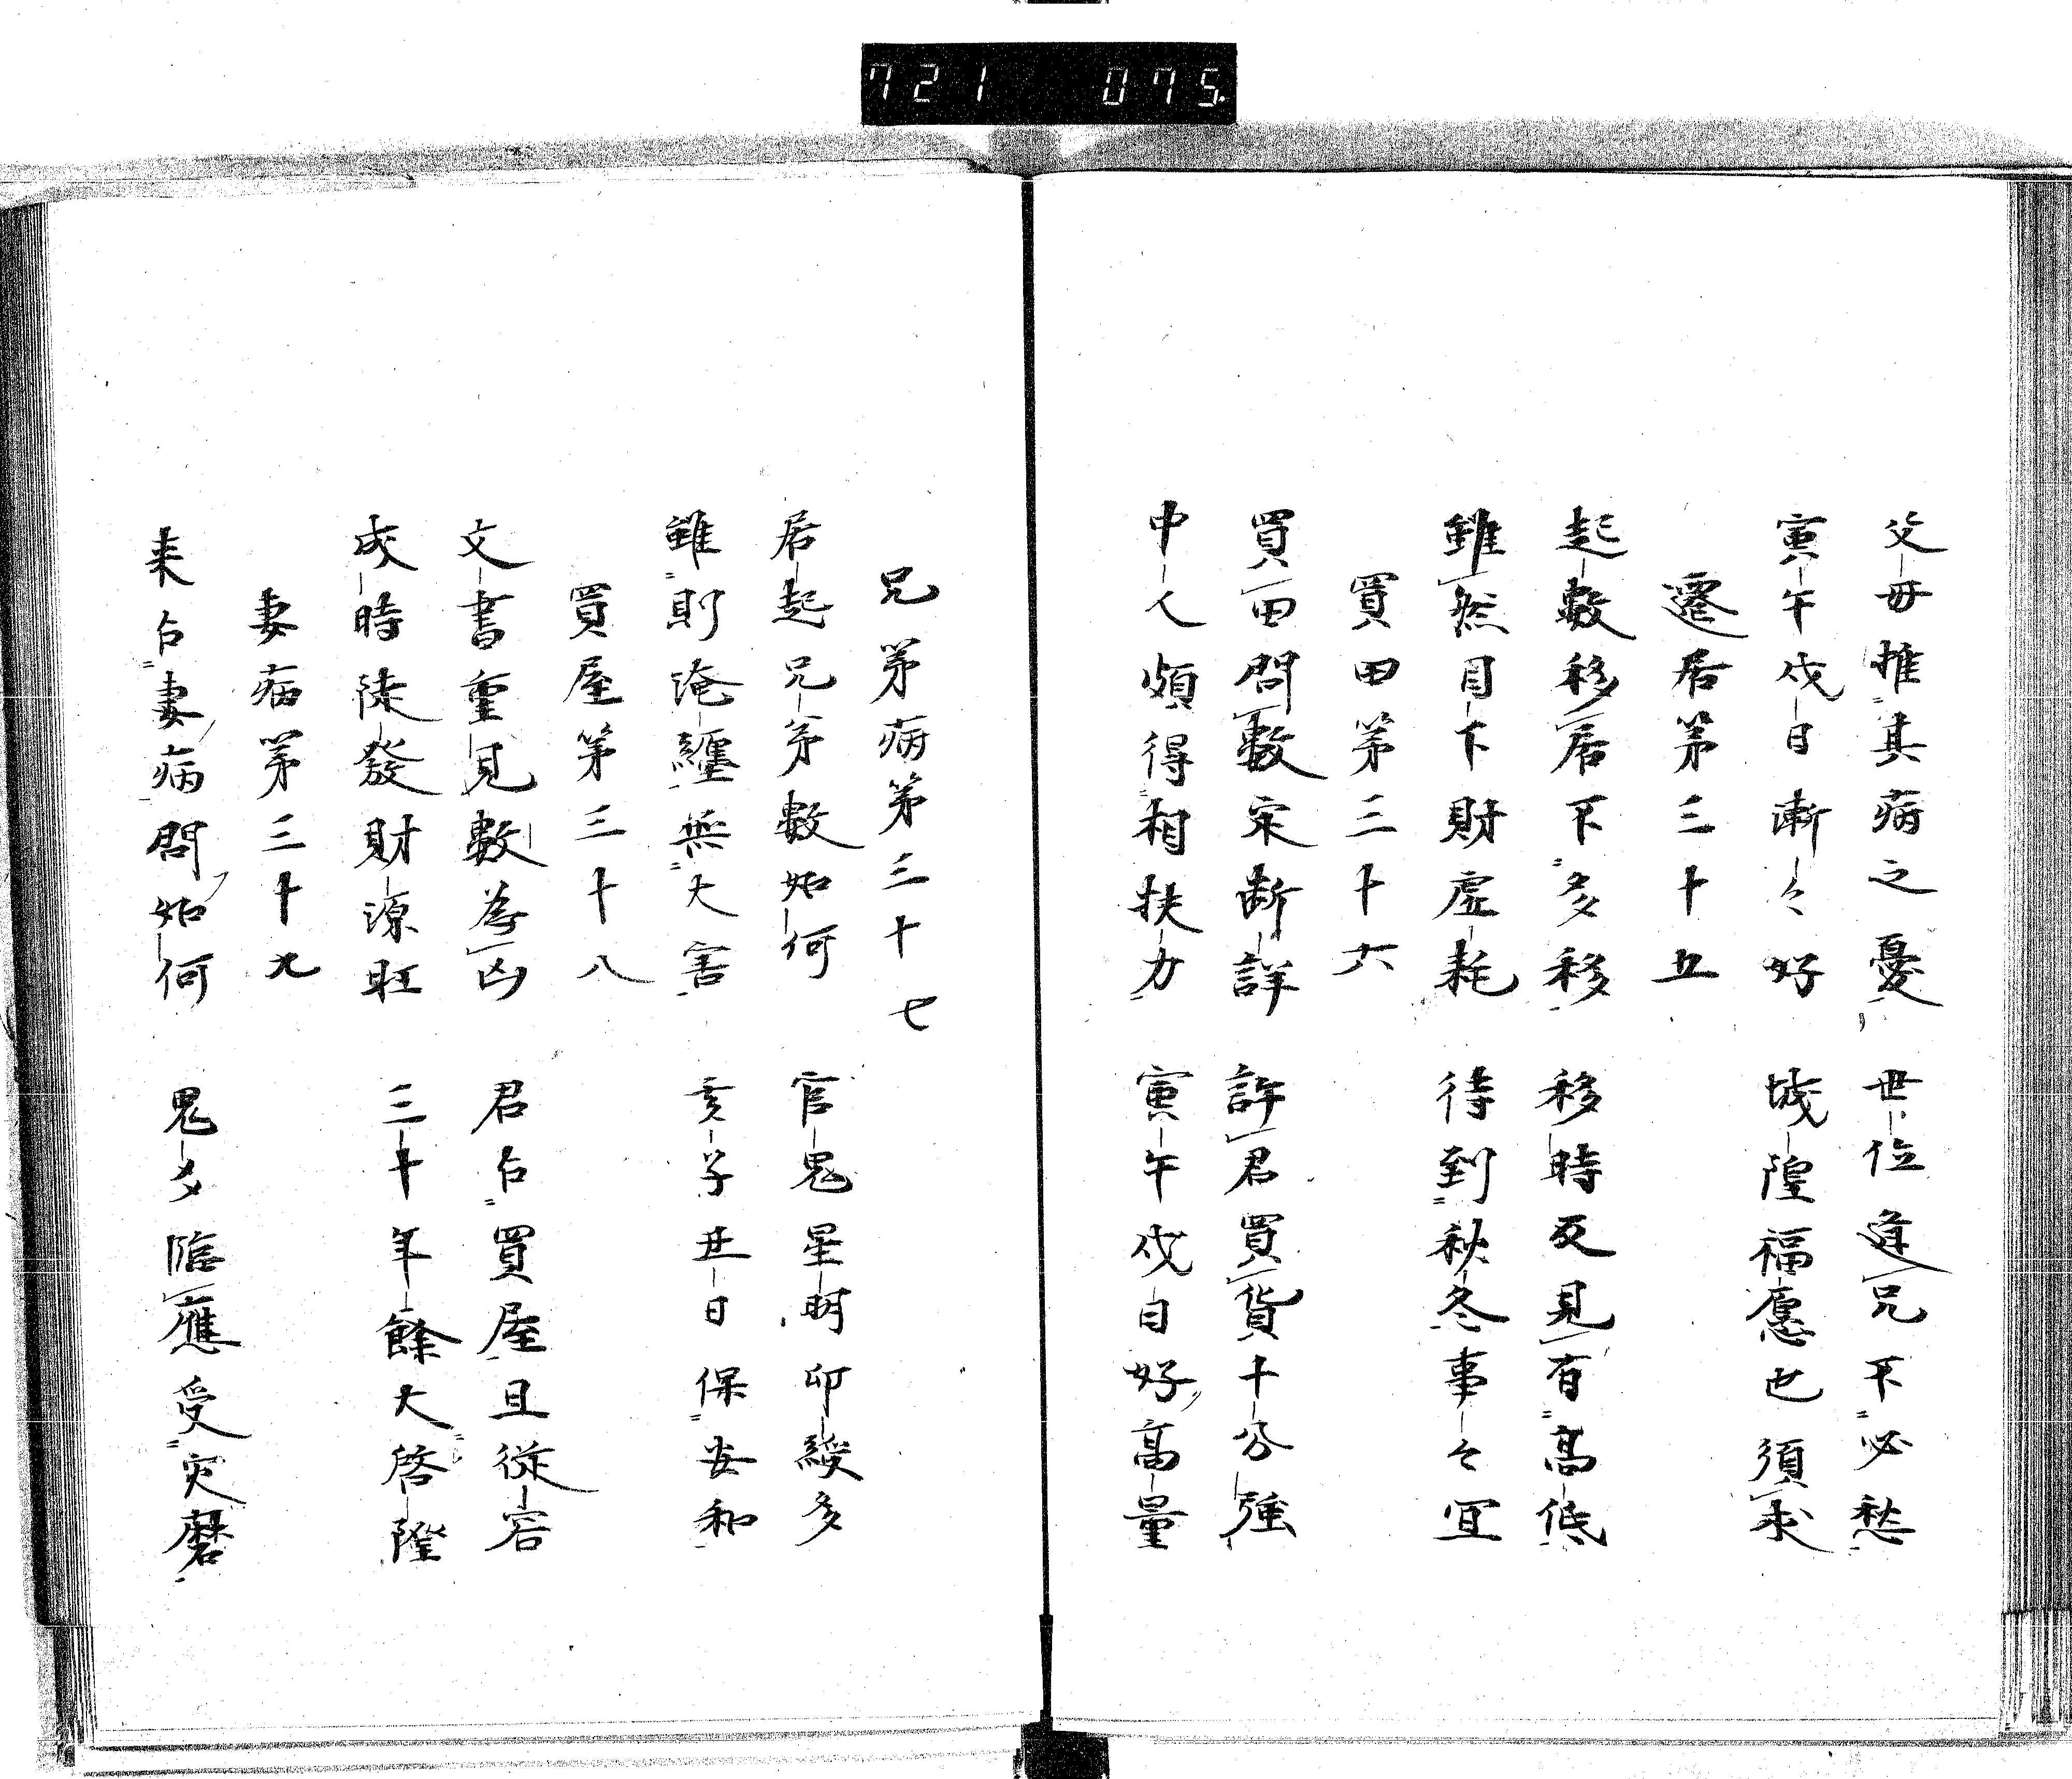 721 075
父母推其病之憂 世位逢兄不必愁
寅午戌日漸々好 城隍福愿也須求
遷居第三十五
起數移居不多移 移時反見有高低
雖然目下財虛耗 待到秋冬事々宜
買田第三十六
買田問數宋断詳 許君買貨十分強
中人頗得相扶力 寅午戌日好高量
兄弟病第三十七
居起兄弟數如何 官鬼星明印綬多
雖則淹纏無大害 亥子丑日保安和
買屋第三十八
文書重見數為凶 君占買屋且從容
成時陡發財源旺 三十年餘大啓隆
妻病第三十九
来占妻病問如何 鬼夕臨應受灾磨